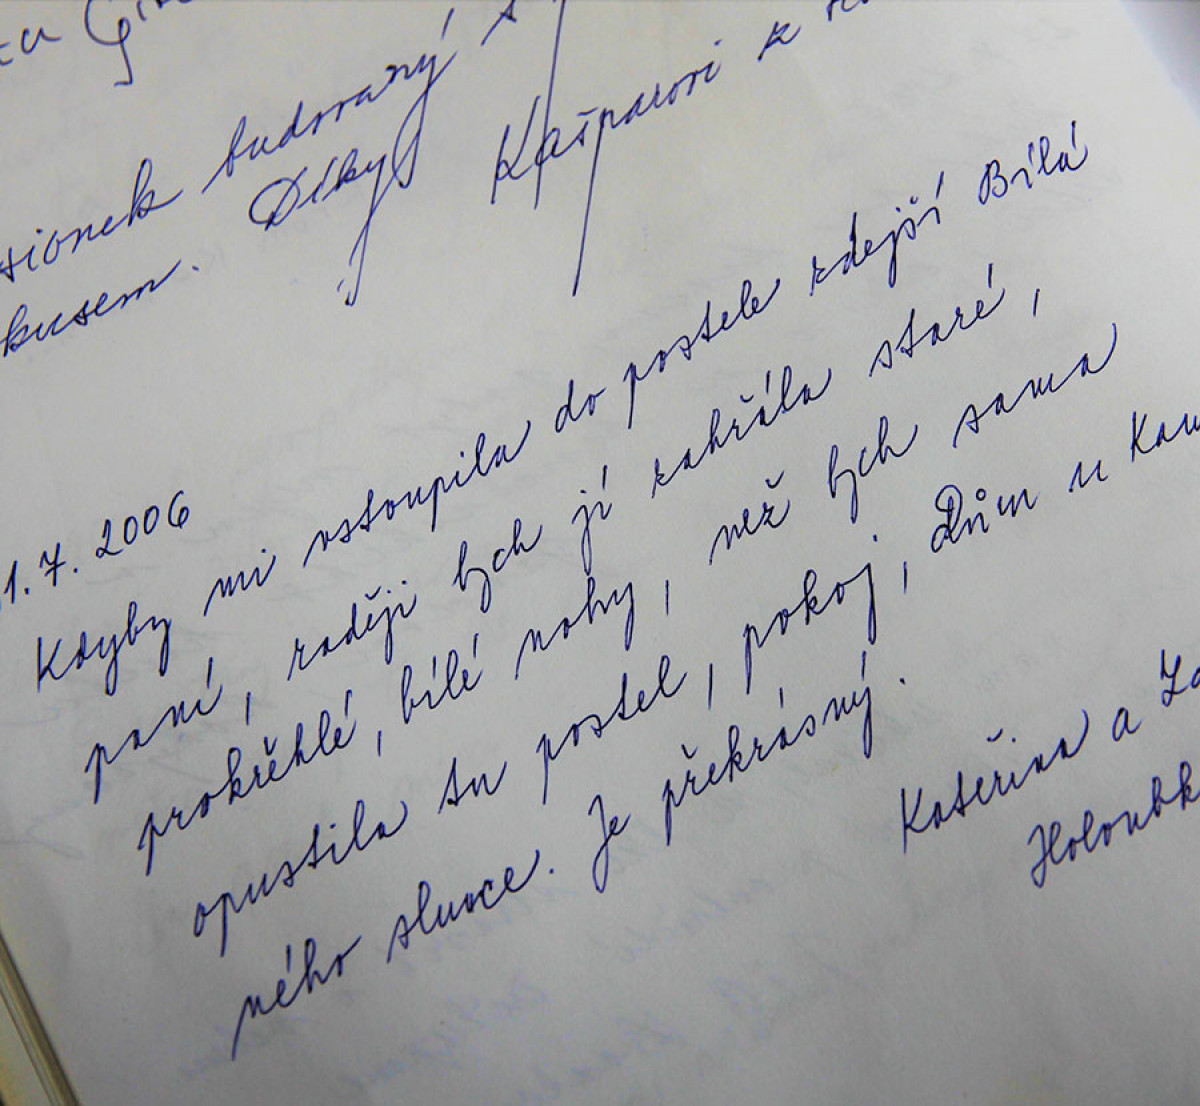 budovaný
Díky Kašparovi z
kusem.
1.7.2006
Kdyby mi vstoupila do postele zdejší Bílá
paní, raději bych jí zahřála staré,
prokřehlé, bílé nohy, než bych sama
opustila tu postel, pokoj, Dům u
ného slunce. Je překrásný.
Kateřina a